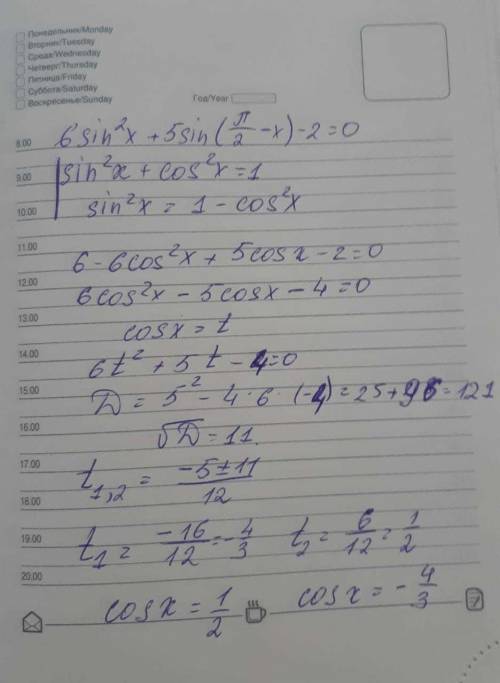 Понедельник/Monday
Вторник/Tuesday
Среда/Wednesday
Четверг/Thursday
Пятница/Friday
Суббота/Saturday
Воскресенье/Sunday
Год/Year
8.00 6sin²x + 5sin(π/2 - x) - 2 = 0
9.00 sin²x + cos²x = 1
10.00 sin²x = 1 - cos²x
11.00
6 - 6cos²x + 5cosx - 2 = 0
12.00 6cos²x - 5cosx - 4 = 0
13.00 cosx = t
14.00 6t² + 5t - 4 = 0
15.00 D = 5² - 4·6·(-4) = 25 + 96 = 121
16.00 √D = 11.
17.00 t₁,₂ = (-5 ± 11)/12
18.00
19.00 t₁ = -16/12 = -4/3 t₂ = 6/12 = 1/2
20.00
cosx = 1/2 cosx = -4/3
7